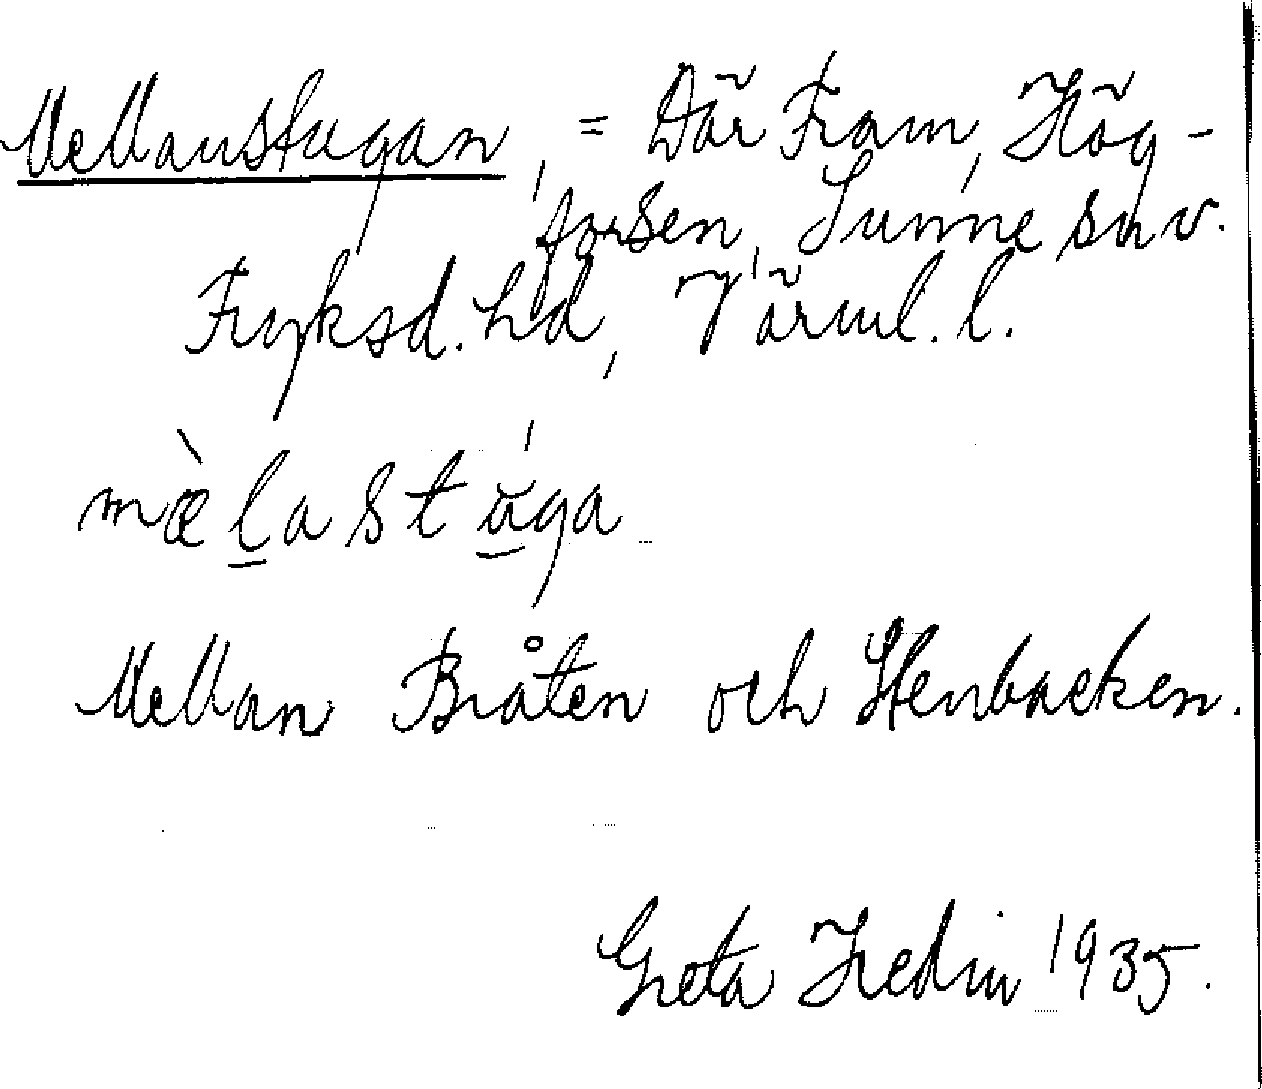 Mellanstugan, = Där Fram, Hög-
forsen, Sunne sn v.
Fryksd. hd, Värml. l.
mæ̀l̲astu̲ga
Mellan Bråten och Stenbacken.
Greta Hedin 1935.